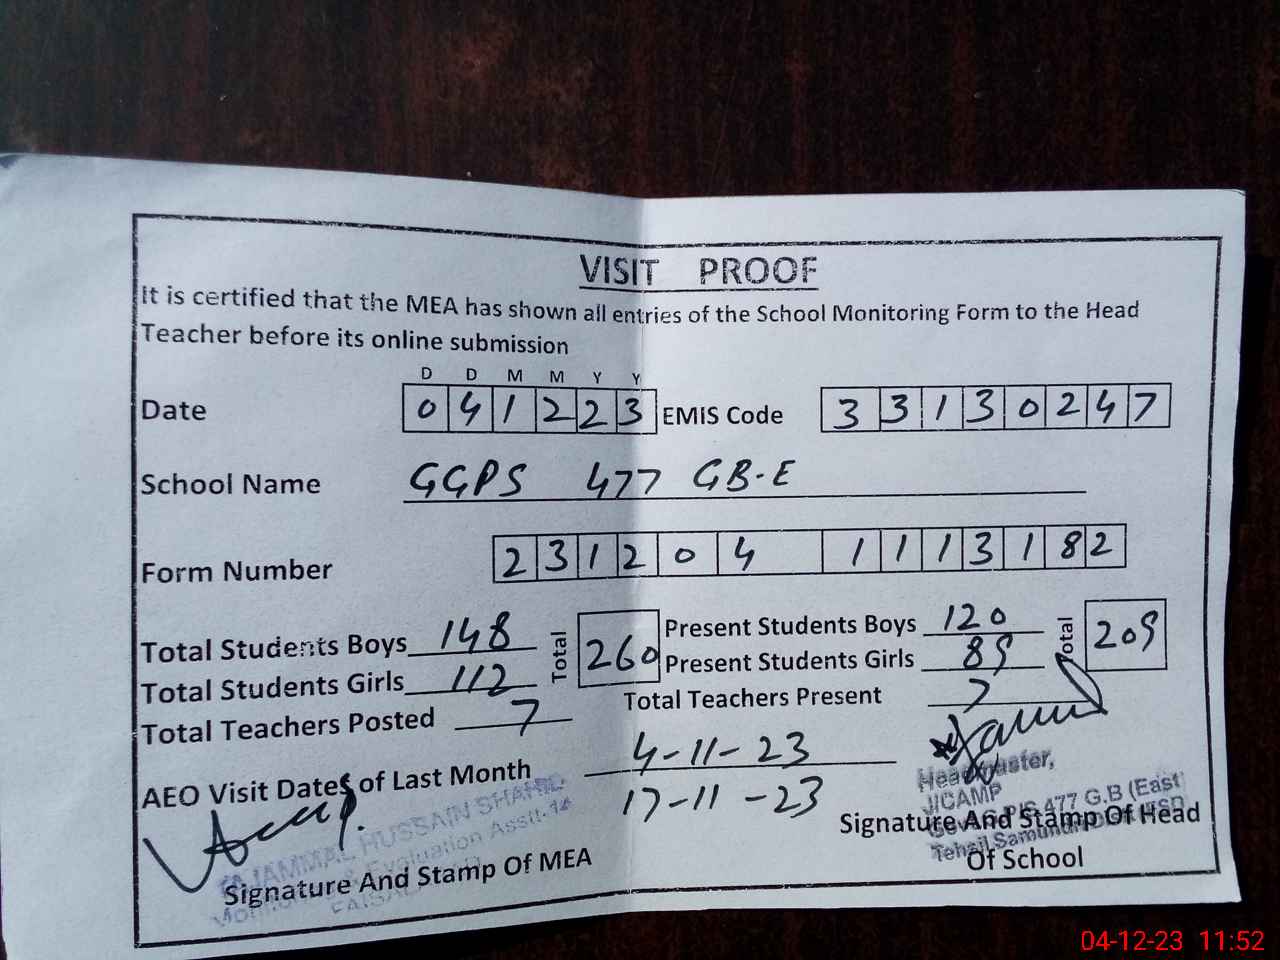 VISIT PROOF
It is certified that the MEA has shown all entries of the School Monitoring Form to the Head
Teacher before its online submission
D D M M Y Y
Date 0 4 1 2 2 3 EMIS Code 3 3 1 3 0 2 4 7
School Name GGPS 477 GB-E
Form Number 2 3 1 2 0 4 1 1 1 3 1 8 2
Total Students Boys 148 Total 260 Present Students Boys 120 Total 209
Total Students Girls 112 Present Students Girls 89
Total Teachers Posted 7 Total Teachers Present 7
AEO Visit Dates of Last Month 4-11-23
17-11-23
Headmaster,
477 G.B (East)
Tehsil
HUSSAIN
Evaluation Asstt-14
Signature And Stamp Of MEA
Signature And Stamp Of Head
Of School
04-12-23 11:52